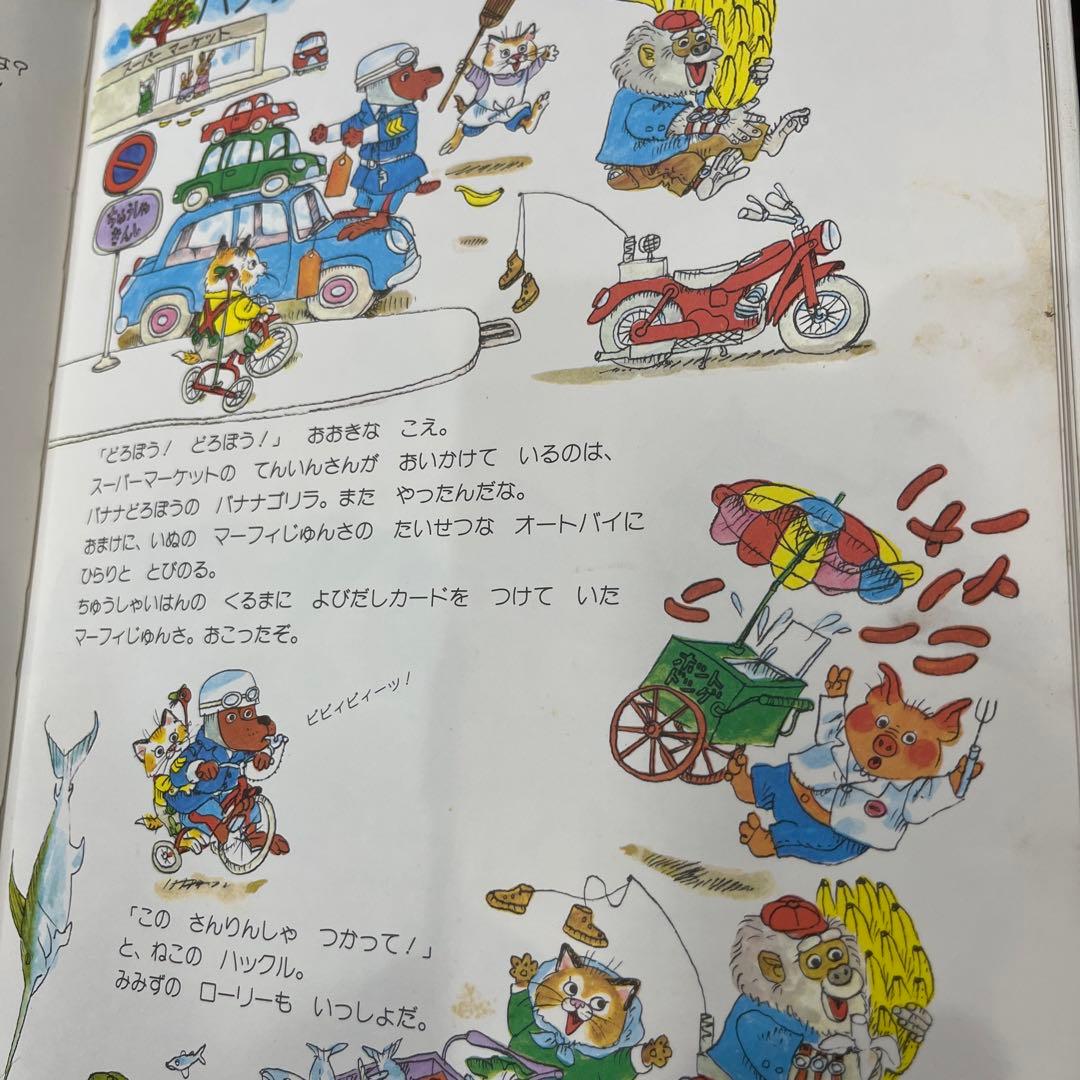 スーパーマーケット
ちゅうしゃ
きんし
「どろぼう！ どろぼう！」 おおきな こえ。
スーパーマーケットの てんいんさんが おいかけて いるのは、
バナナどろぼうの バナナゴリラ。また やったんだな。
おまけに、いぬの マーフィじゅんさの たいせつな オートバイに
ひらりと とびのる。
ちゅうしゃいはんの くるまに よびだしカードを つけて いた
マーフィじゅんさ。おこったぞ。
ピピィピィーッ！
ホット
ドッグ
「この さんりんしゃ つかって！」
と、ねこの ハックル。
みみずの ローリーも いっしょだ。